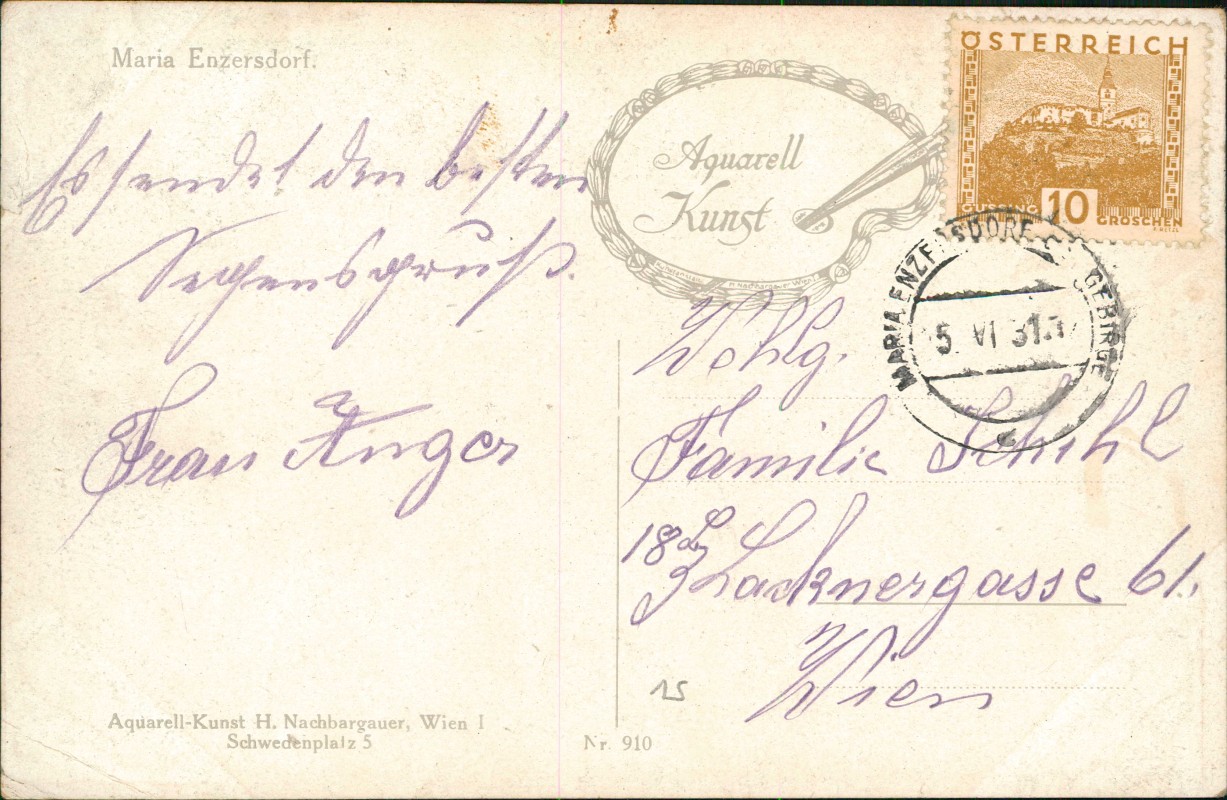 Maria Enzersdorf.
Es sendet den besten
Segensgruß.
Frau Anger
Aquarell-Kunst H. Nachbargauer, Wien I
Schwedenplatz 5
Nr. 910
Aquarell
Kunst
H. Nachbargauer Wien I
ÖSTERREICH
GÜSSING 10 GROSCHEN
MARIA ENZERSDORF GEBIRGE
5. VI 31
Wohlg.
Familie Schihl
18 Bez
Lacknergasse 61.
Wien
15